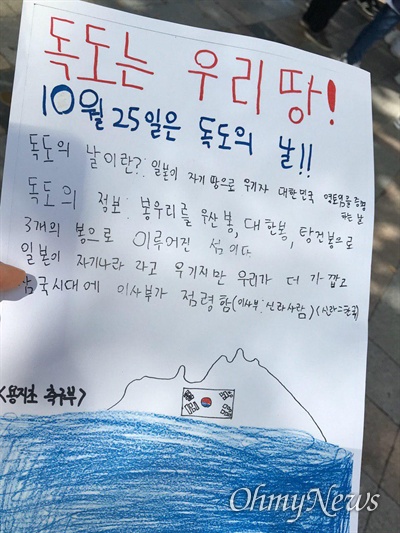 독도는 우리 땅!
10월 25일은 독도의 날!!
독도의 날이란?: 일본이 자기 땅으로 우기자 대한민국 영토임을 증명
하는 날
독도의 정보: 봉우리를 우산봉, 대한봉, 탕건봉으로
3개의 봉으로 이루어진 섬이다
일본이 자기나라 라고 우기지만 우리가 더 가깝고
삼국시대에 이사부가 점령함(이사부: 신라사람) (신라=한국)
<용지초 축구부>
OhmyNews